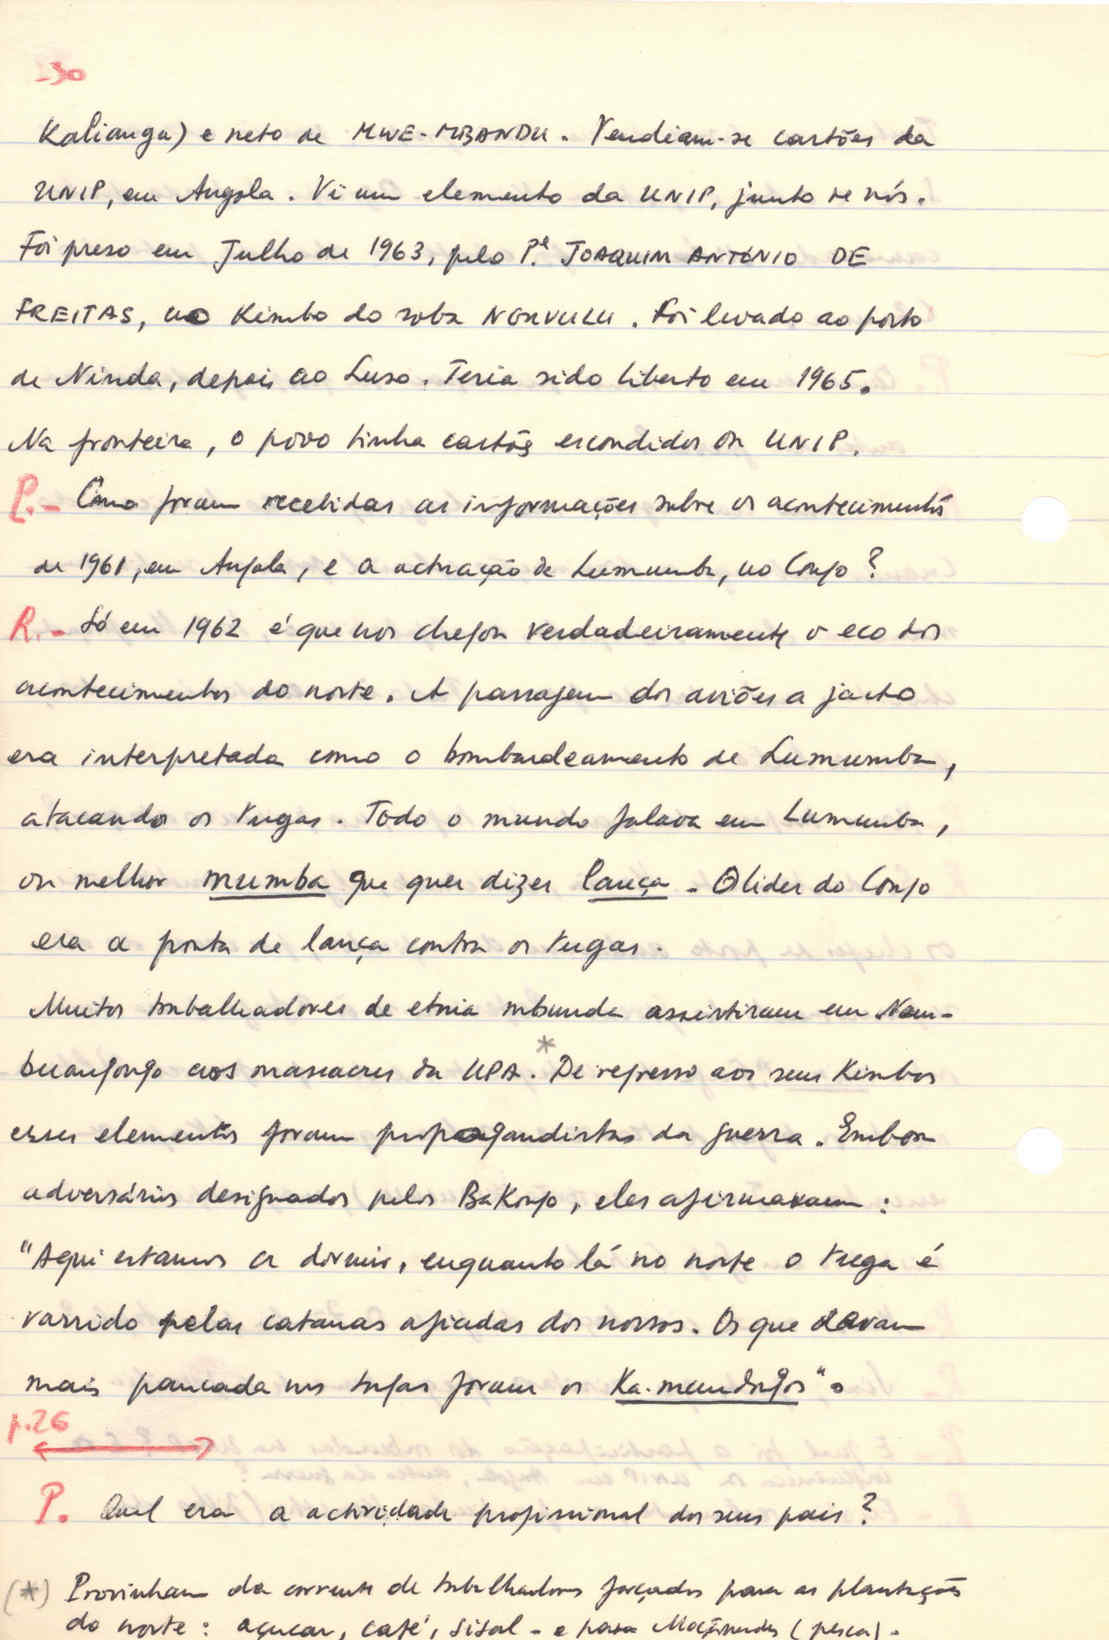 -30
Kalianga) e neto de MWE-MBANDU. Vendiam-se cartões da
UNIP, em Angola. Vi um elemento da UNIP, junto de nós.
Foi preso em Julho de 1963, pelo P.e JOAQUIM ANTÓNIO DE
FREITAS, no Kimbo do soba NGUVULU. Foi levado ao posto
de Ninda, depois ao Luso. Teria sido liberto em 1965.
Na fronteira, o povo tinha cartões escondidos da UNIP.
P.- Como foram recebidas as informações sobre os acontecimentos
de 1961, em Angola, e a actuação de Lumumba, no Congo?
R.- Só em 1962 é que nos chegou verdadeiramente o eco dos
acontecimentos do norte. A passagem dos aviões a jacto
era interpretada como o bombardeamento de Lumumba,
atacando os tugas. Todo o mundo falava em Lumumba,
ou melhor mumba que quer dizer lança. O lider do Congo
era a ponta de lança contra os tugas.
Muitos trabalhadores de etnia mbunda assistiram em Nam-
buangongo aos massacres da UPA.* De regresso aos seus Kimbos
esses elementos foram propagandistas da guerra. Embora
adversários designados pelos BaKongo, eles afirmavam:
"Aqui estamos a dormir, enquanto lá no norte o tuga é
varrido pelas catanas afiadas dos nossos. Os que davam
mais pancada nos tugas foram os
p.26
P. Qual era a actividade profissional dos seus pais?
(*) Provinham da corrente de trabalhadores forçados para as plantações
do norte: açucar, café, sisal - e para Moçâmedes (pesca).